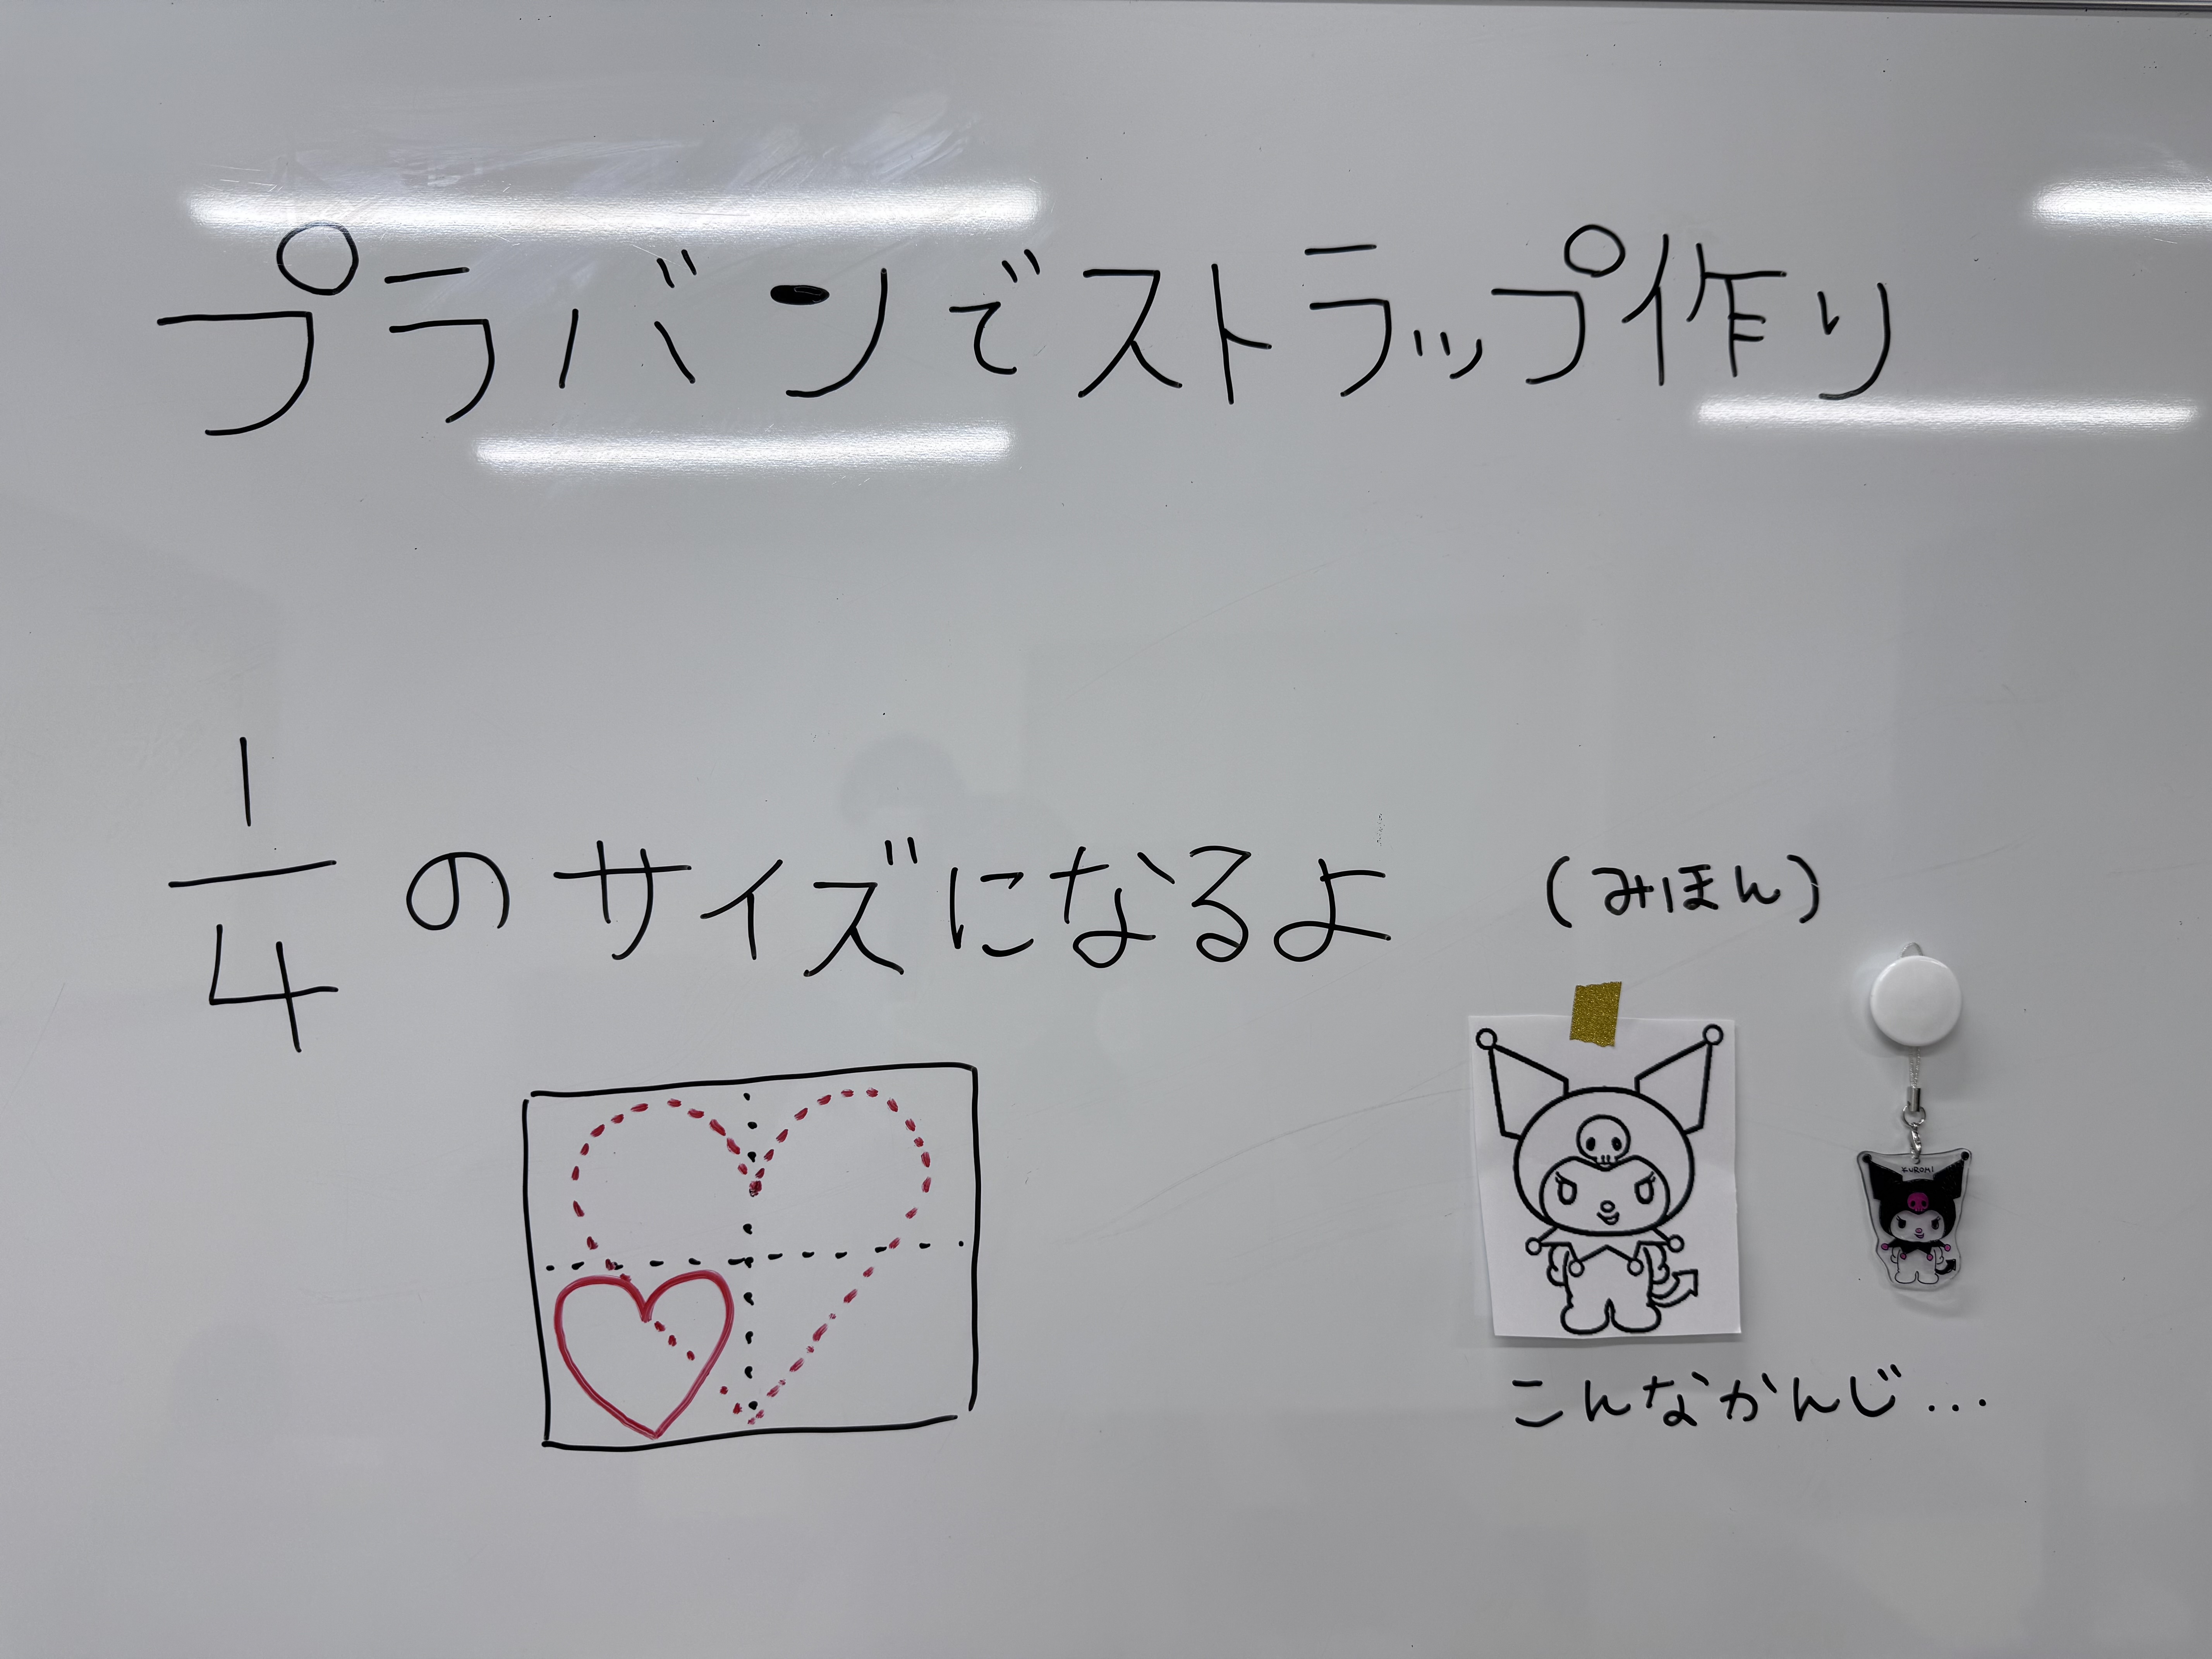 プラバンでストラップ作り
1/4のサイズになるよ
(みほん)
KUROMI
こんなかんじ...